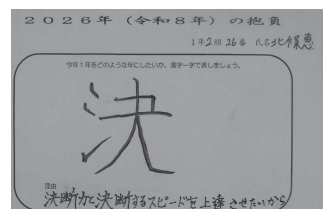 2026年（令和8年）の抱負
1年2組26番 氏名北條恵
今年1年をどのような年にしたいか、漢字一字で表しましょう。
決
理由
決断力と決断するスピードを上達させたいから